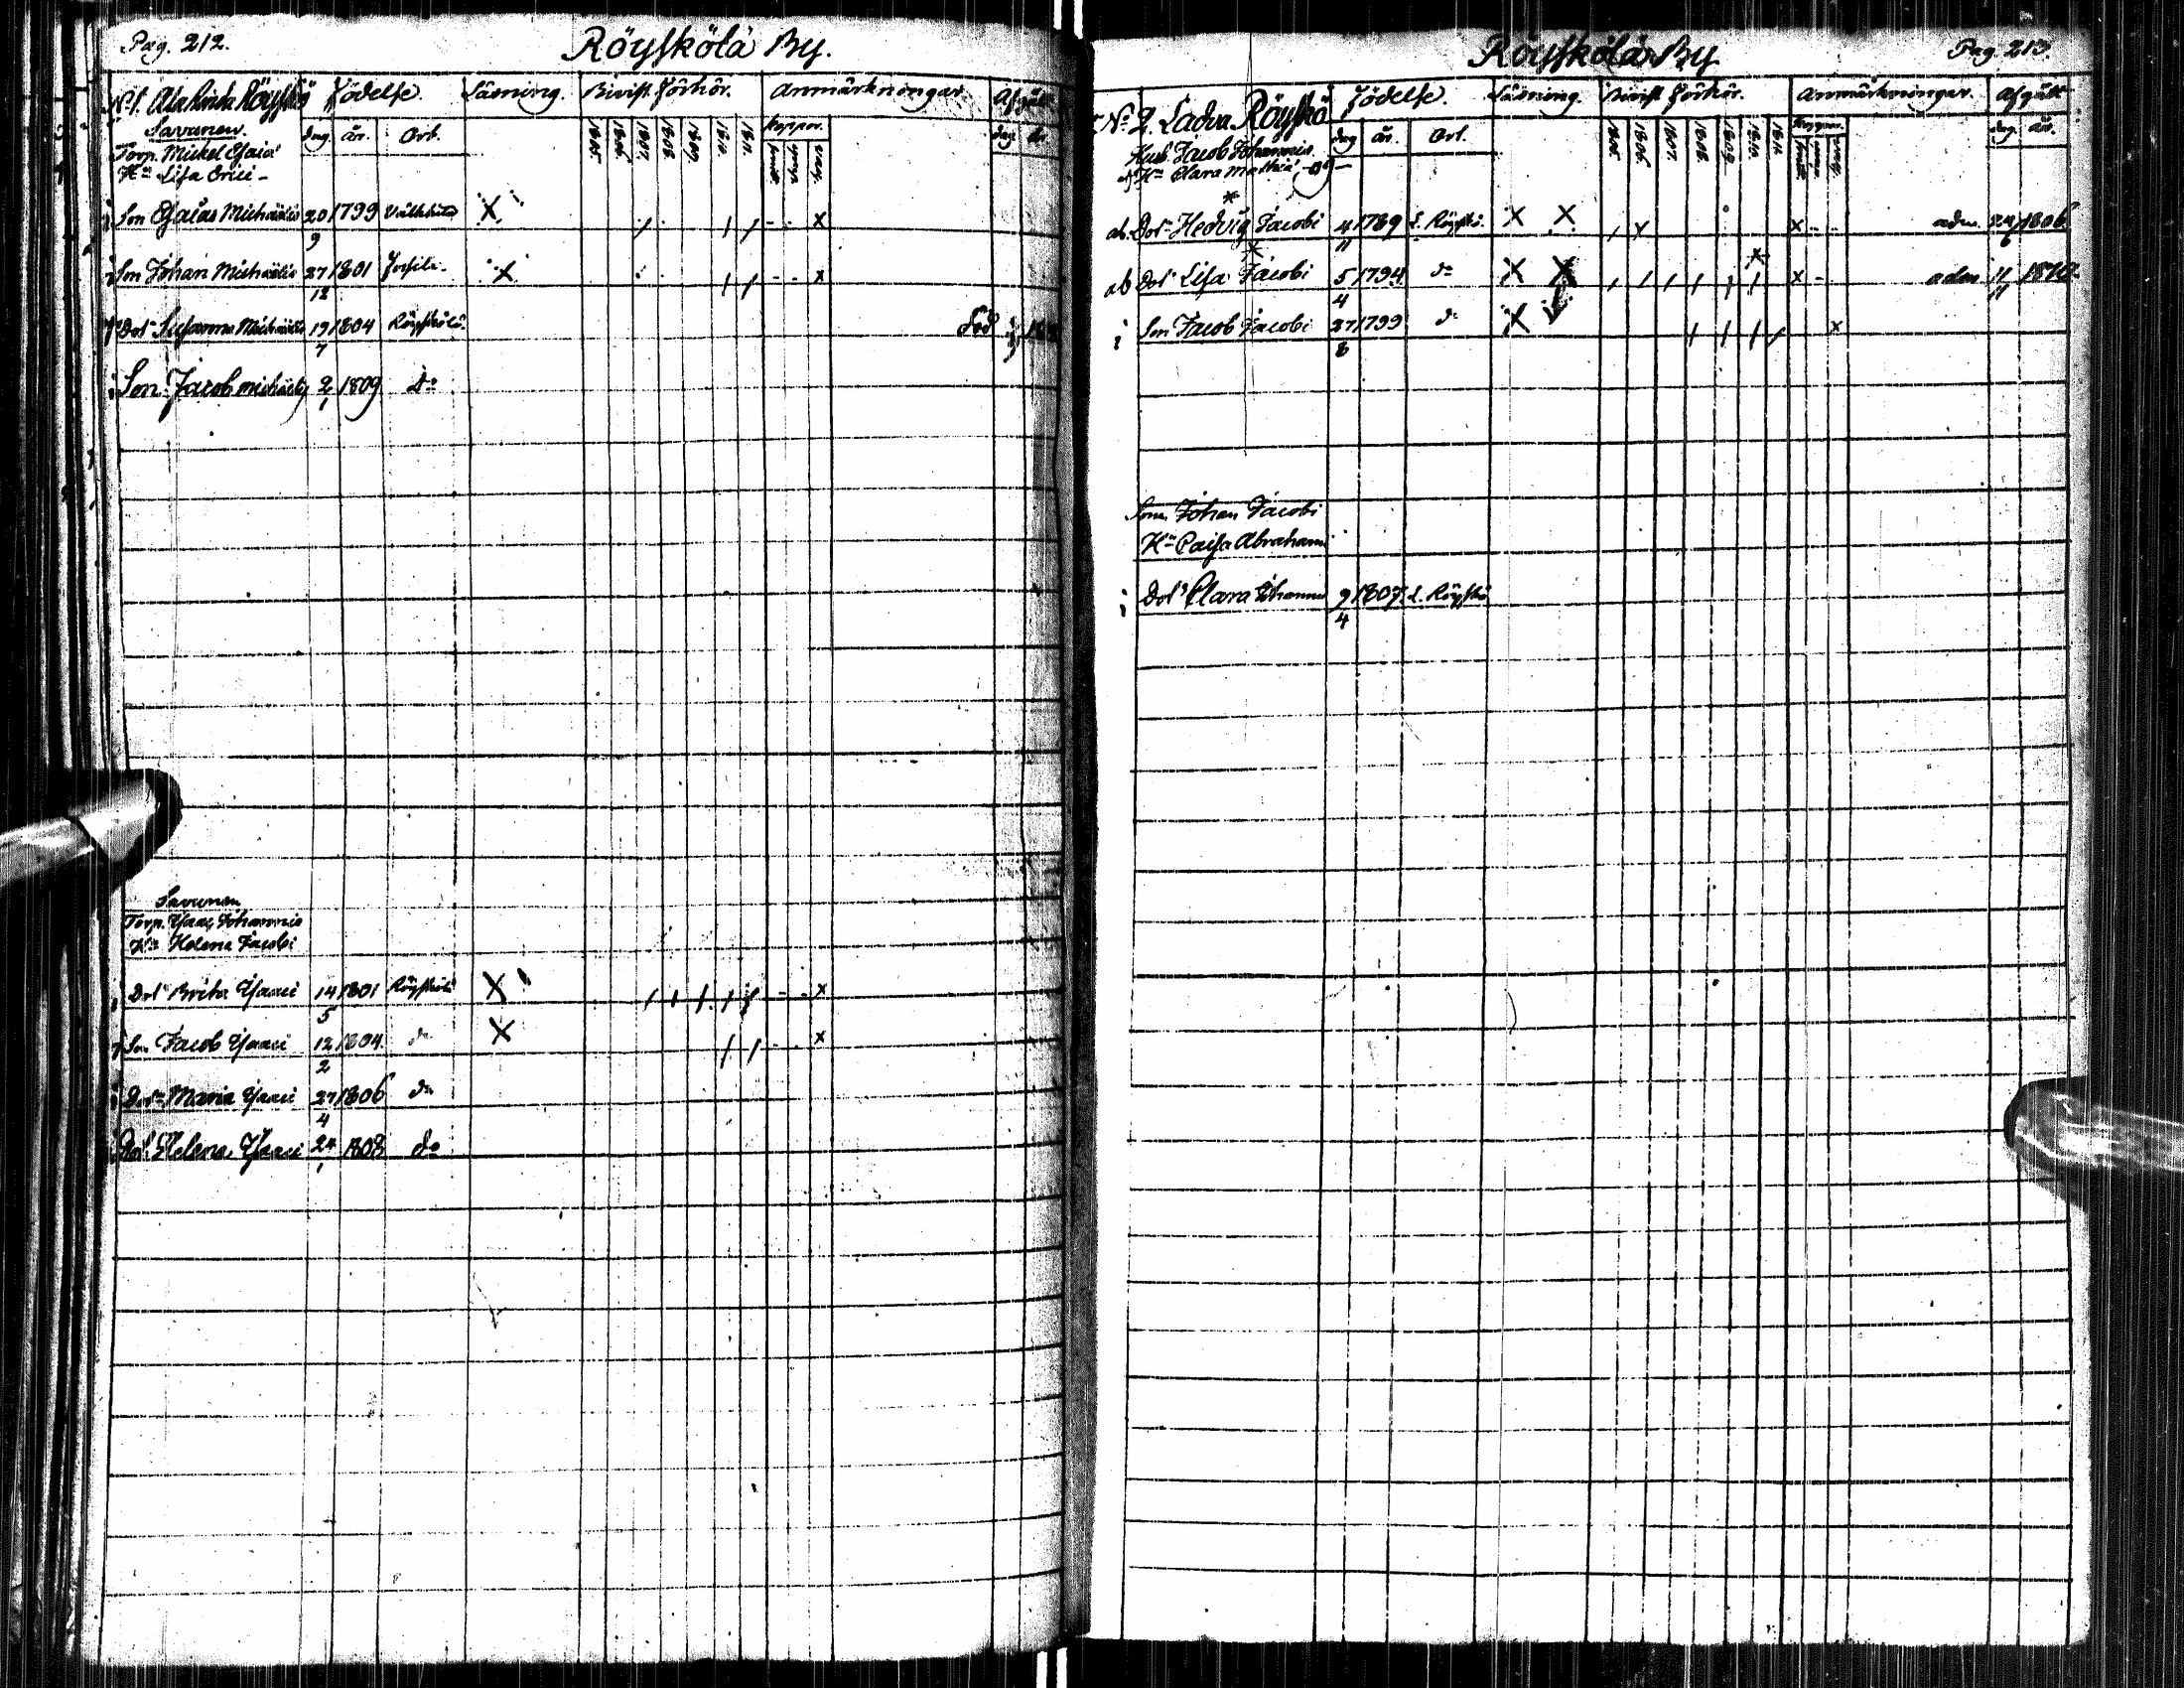 Pag. 212.
Röyskölä By.
No 1. Ala Röyskö
Födelse. Läsning. Bivist. Förhör. Anmärkningar. Afgått
Savunen.
dag. år. Ort. 1805. 1806. 1807. 1808. 1809. 1810. 1811. Koppor. dag år
Torp. Michel Esaiæ
Hu Lisa Erici
i Son Esaias Michaelis 20/9 1799 X x
i Son Johan Michaelis 27/12 1801 X x
Dotr Susanna Michaelis 19/7 1804 Röyskölä död
i Son Jacob Michaelis 2/1 1809 do
Savunen
Torp. Isaac Johannis
Hu Helena Jacobi
i Dotr Brita Isaaci 14/5 1801 Röyskölä X x
i Son Jacob Isaaci 12/2 1804 do X x
i Dotr Maria Isaaci 27/4 1806 do
i Dotr Helena Isaaci 24/1 1808 do
Röyskölä By
Pag. 213.
No 2. Ladva Röyskö
Födelse. Läsning. Bivist. Förhör. Anmärkningar. Afgått
dag år. Ort. 1805. 1806. 1807. 1808. 1809. 1810. 1811. Koppor. dag. år.
Husb. Jacob Johannis
Hu Clara Mathiæ
ab. Dotr Hedvig Jacobi 4/11 1789 L. Röyskö. X X x adm. 1806
ab Dotr Lisa Jacobi 5/4 1794 do X X x adm 11/11 1810
i Son Jacob Jacobi 27/8 1799 do X x
Son Johan Jacobi
Hu Caisa Abrahami
i Dotr Clara Johannis 9/4 1807. L. Röyskö